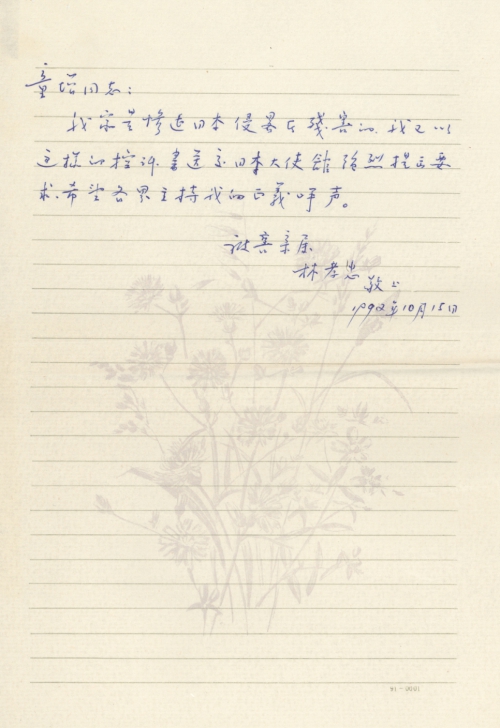 童增同志：
我家是惨遭日本侵略兵残害的，我又以
这样的控诉书送交日本大使馆强烈提出要
求，希望各界主持我的正义呼声。
被害亲属
林孝忠 敬上
1992年10月15日